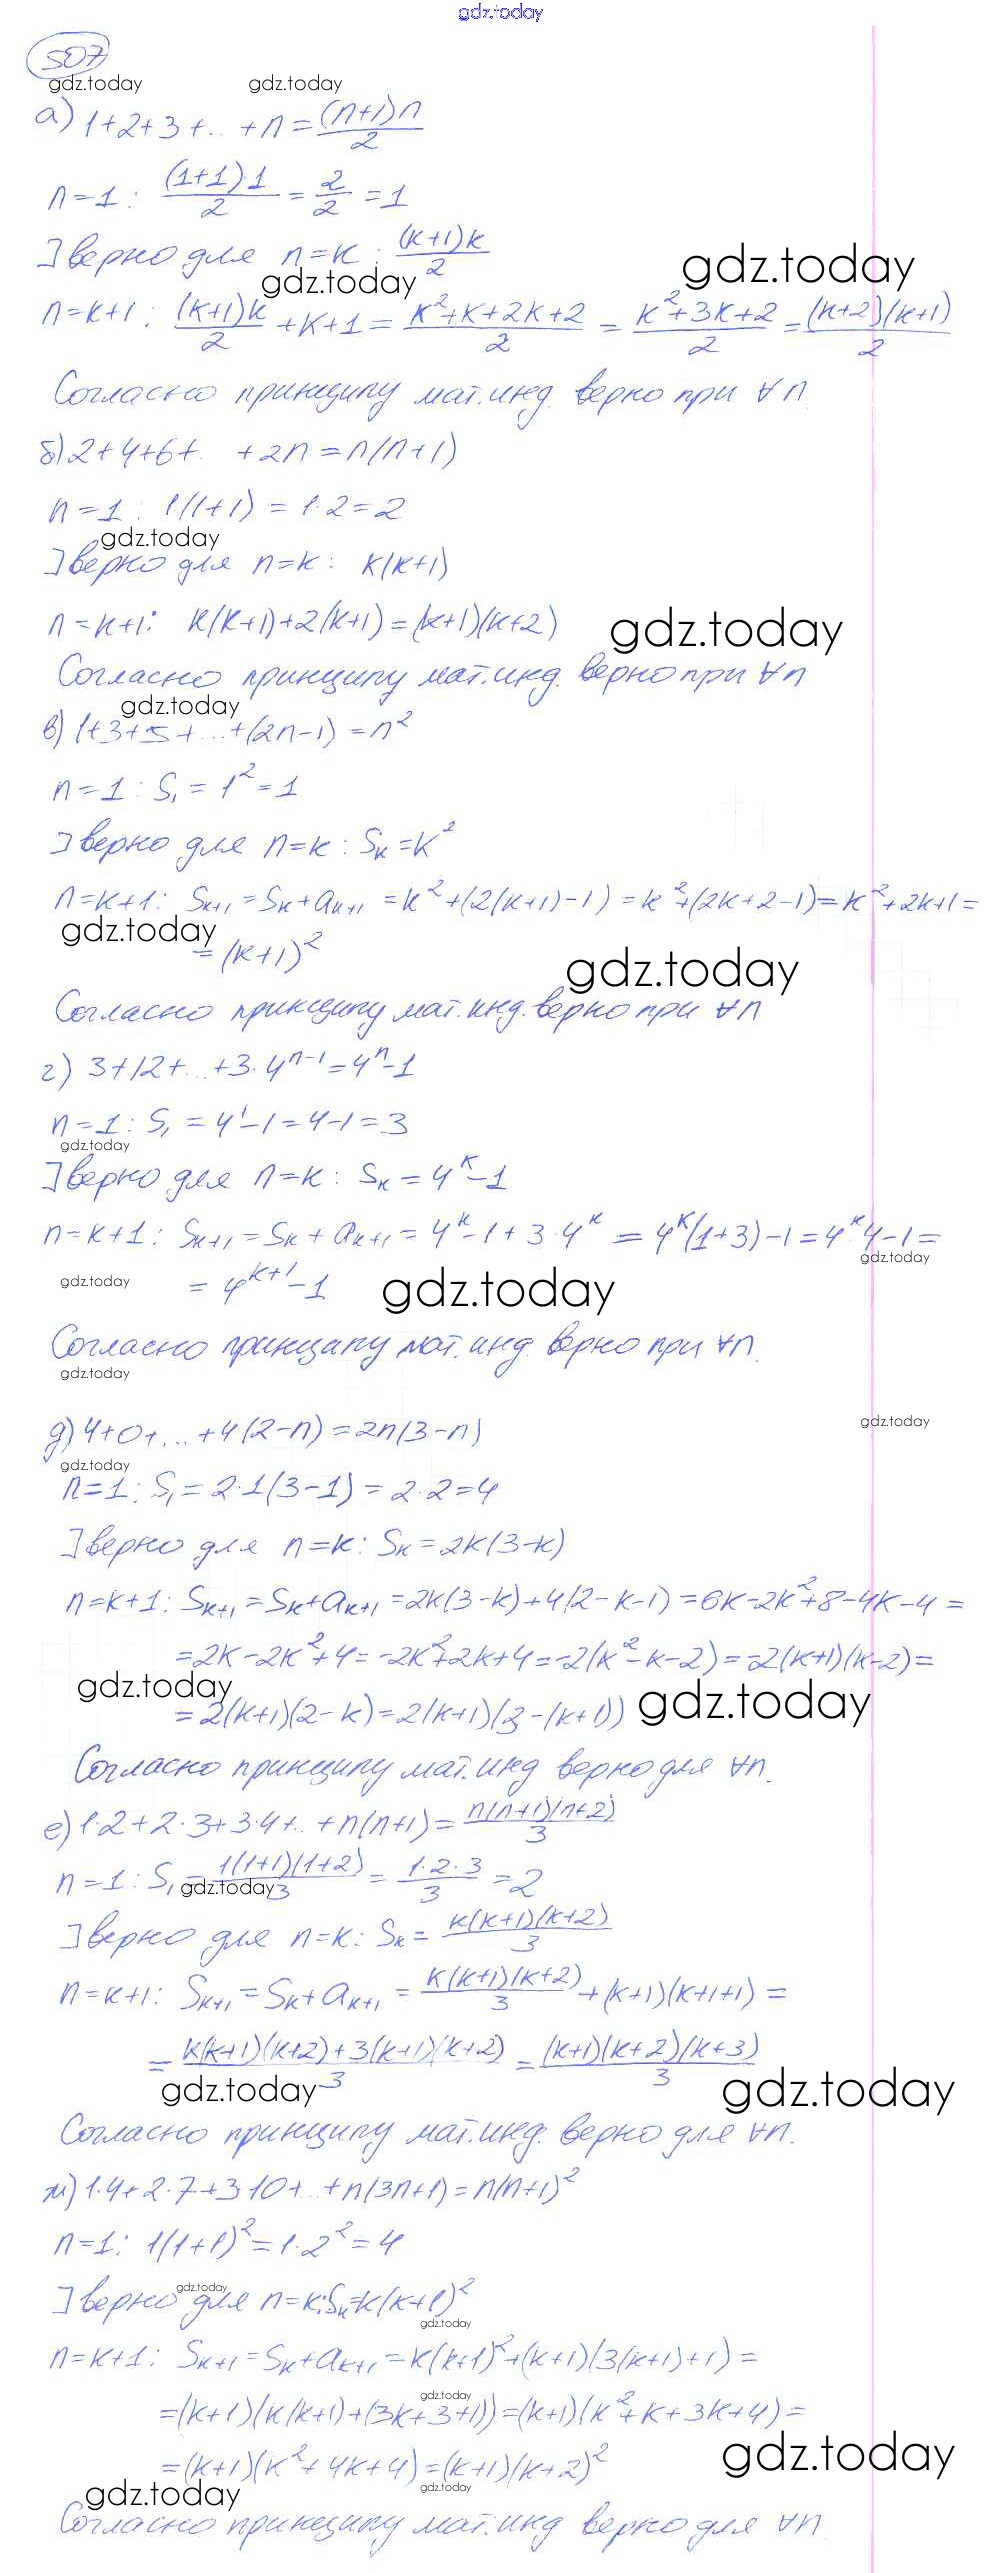 gdz.today
507
gdz.today gdz.today
а) 1+2+3+... +n = (n+1)n/2
n=1: (1+1)·1/2 = 2/2 = 1
] верно для n=k: (k+1)k/2
gdz.today gdz.today
n=k+1: (k+1)k/2 + k+1 = k²+k+2k+2/2 = k²+3k+2/2 = (k+2)(k+1)/2
Согласно принципу мат.инд. верно при ∀n
б) 2+4+6+... +2n = n(n+1)
n=1: 1(1+1) = 1·2 = 2
gdz.today
] верно для n=k: k(k+1)
n=k+1: k(k+1)+2(k+1) = (k+1)(k+2)
gdz.today
Согласно принципу мат.инд. верно при ∀n
gdz.today
в) 1+3+5+...+(2n-1) = n²
n=1: S₁ = 1² = 1
] верно для n=k: Sₖ = k²
n=k+1: Sₖ₊₁ = Sₖ+aₖ₊₁ = k²+(2(k+1)-1) = k²+(2k+2-1) = k²+2k+1 =
gdz.today
= (k+1)²
gdz.today
Согласно принципу мат.инд. верно при ∀n
г) 3+12+...+3·4ⁿ⁻¹ = 4ⁿ-1
n=1: S₁ = 4¹-1 = 4-1 = 3
gdz.today
] верно для n=k: Sₖ = 4ᵏ-1
n=k+1: Sₖ₊₁ = Sₖ+aₖ₊₁ = 4ᵏ-1+3·4ᵏ = 4ᵏ(1+3)-1 = 4ᵏ·4-1 =
gdz.today
gdz.today = 4ᵏ⁺¹-1 gdz.today
Согласно принципу мат.инд. верно при ∀n.
gdz.today
gdz.today
д) 4+0+...+4(2-n) = 2n(3-n)
gdz.today
n=1: S₁ = 2·1(3-1) = 2·2 = 4
] верно для n=k: Sₖ = 2k(3-k)
n=k+1: Sₖ₊₁ = Sₖ+aₖ₊₁ = 2k(3-k)+4(2-k-1) = 6k-2k²+8-4k-4 =
= 2k-2k²+4 = -2k²+2k+4 = -2(k²-k-2) = -2(k+1)(k-2) =
gdz.today
= 2(k+1)(2-k) = 2(k+1)(3-(k+1)) gdz.today
Согласно принципу мат.инд верно для ∀n.
е) 1·2+2·3+3·4+...+n(n+1) = n(n+1)(n+2)/3
n=1: S₁ = 1(1+1)(1+2)/3 = 1·2·3/3 = 2
gdz.today
] верно для n=k: Sₖ = k(k+1)(k+2)/3
n=k+1: Sₖ₊₁ = Sₖ+aₖ₊₁ = k(k+1)(k+2)/3 + (k+1)(k+1+1) =
= k(k+1)(k+2)+3(k+1)(k+2)/3 = (k+1)(k+2)(k+3)/3
gdz.today gdz.today
Согласно принципу мат.инд. верно для ∀n.
ж) 1·4+2·7+3·10+...+n(3n+1) = n(n+1)²
n=1: 1(1+1)² = 1·2² = 4
gdz.today
] верно для n=k: Sₖ=k(k+1)²
gdz.today
n=k+1: Sₖ₊₁ = Sₖ+aₖ₊₁ = k(k+1)²+(k+1)(3(k+1)+1) =
gdz.today
= (k+1)(k(k+1)+(3k+3+1)) = (k+1)(k²+k+3k+4) =
gdz.today
= (k+1)(k²+4k+4) = (k+1)(k+2)²
gdz.today gdz.today
Согласно принципу мат.инд верно для ∀n